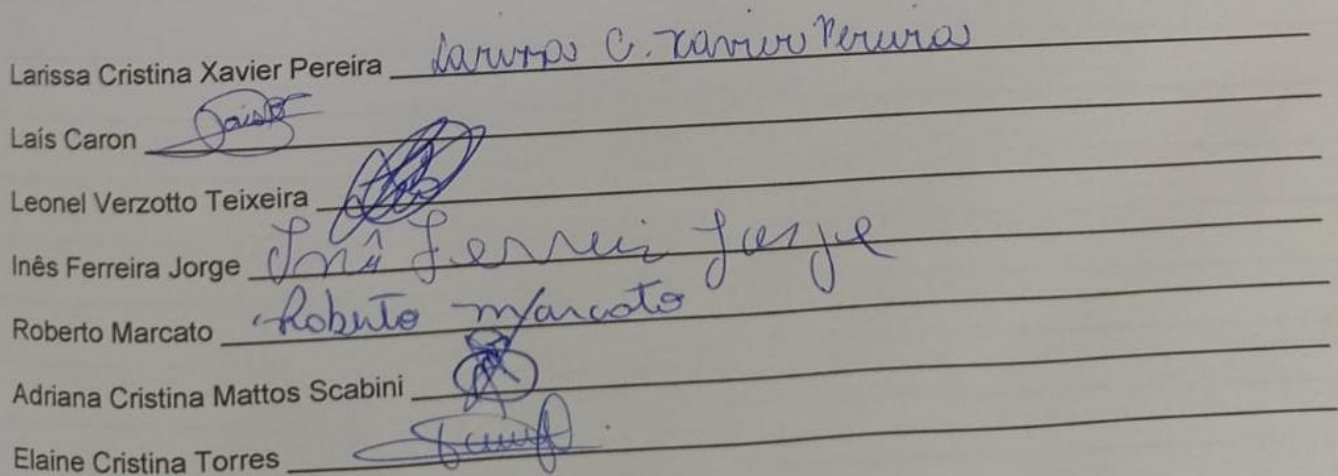 Larissa Cristina Xavier Pereira Larissa C. Xavier Pereira
Laís Caron
Leonel Verzotto Teixeira
Inês Ferreira Jorge Inê Ferreir Jorge
Roberto Marcato Roberto Marcato
Adriana Cristina Mattos Scabini
Elaine Cristina Torres